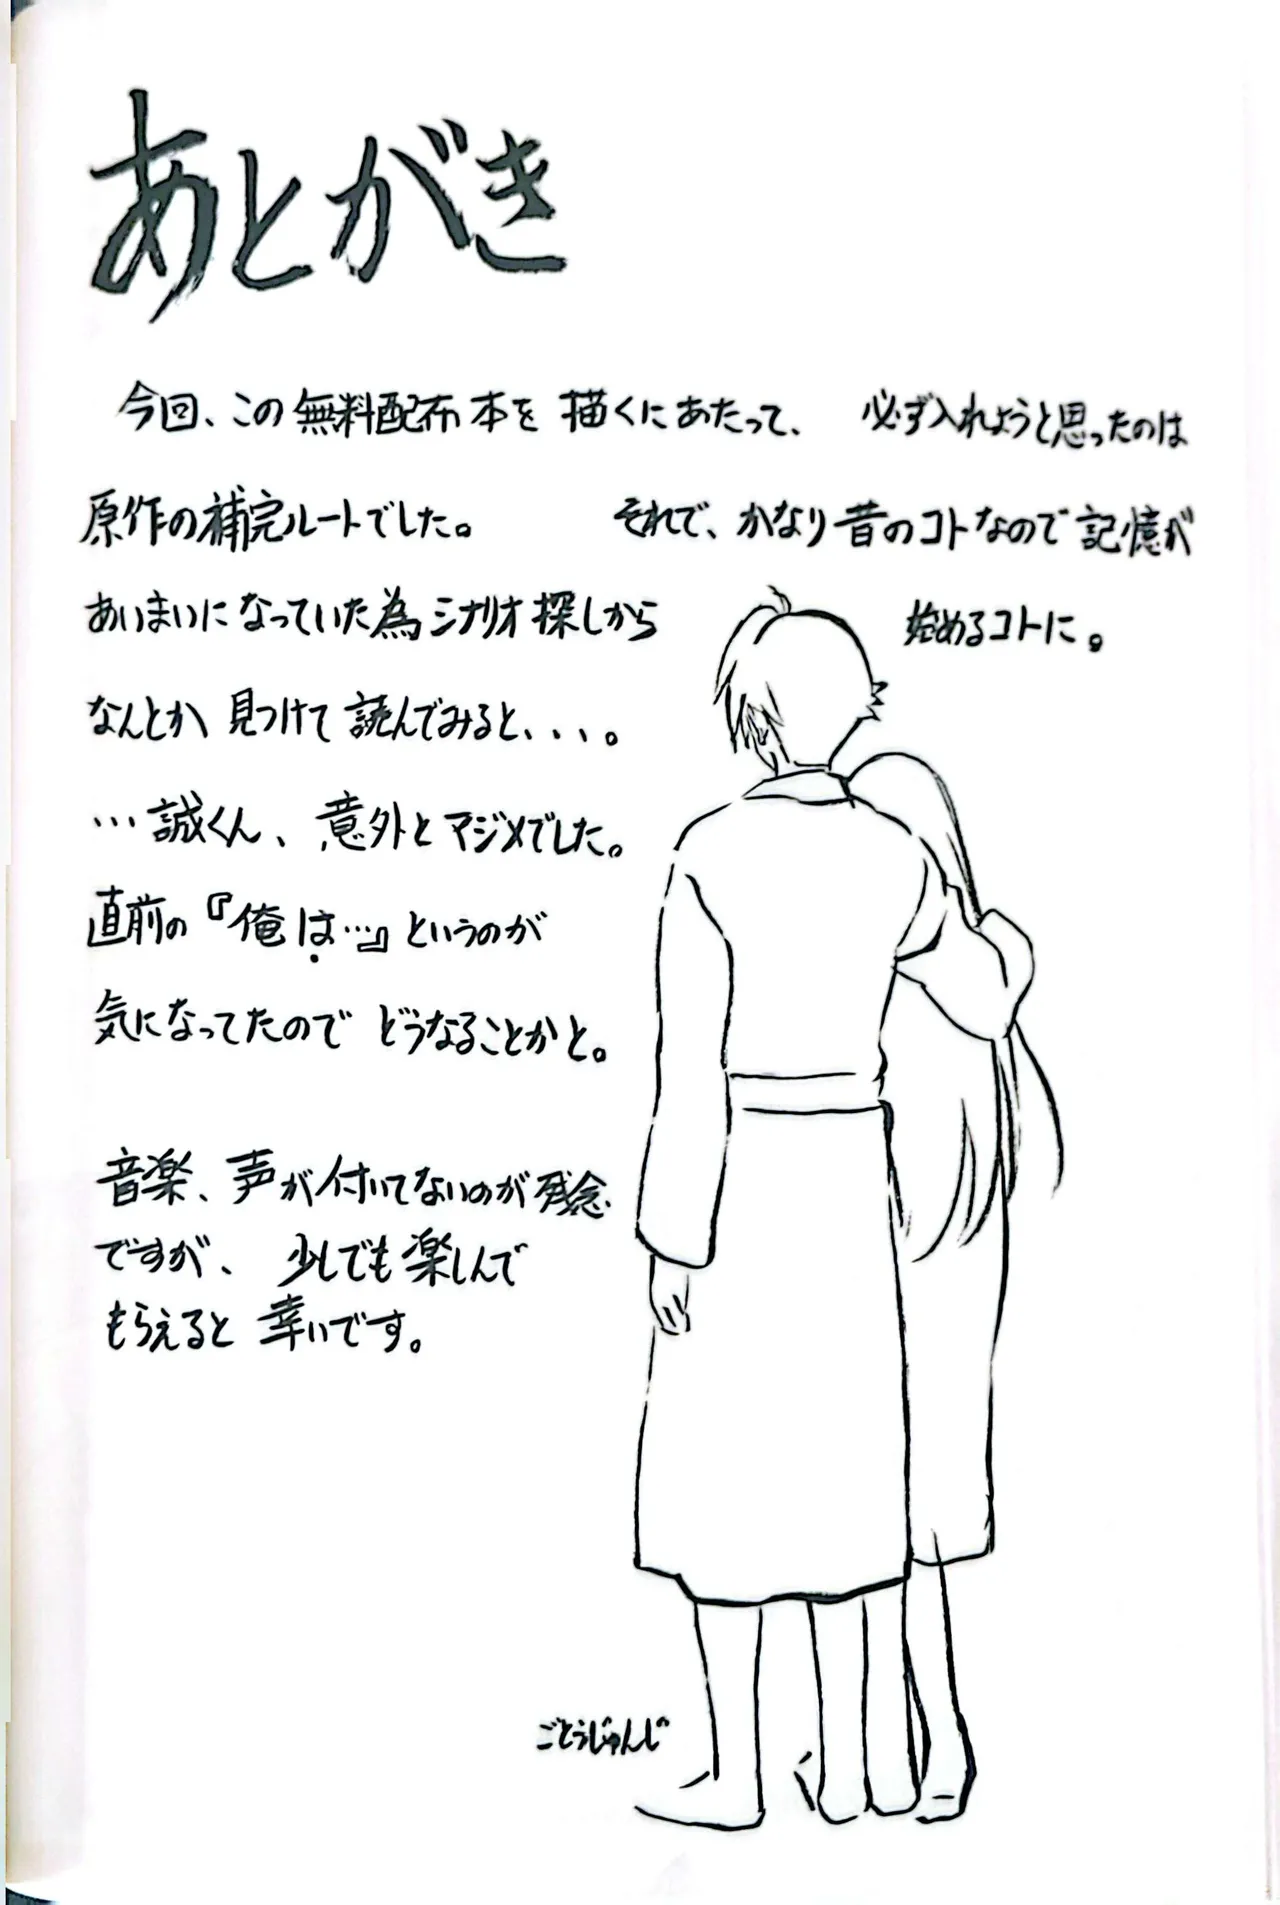 あとがき
今回、この無料配布本を描くにあたって、 必ず入れようと思ったのは
原作の補完ルートでした。 それで、かなり昔のコトなので記憶が
あいまいになっていた為シナリオ探しから 始めるコトに。
なんとか見つけて読んでみると、、、。
…誠くん、意外とマジメでした。
直前の『俺は…』というのが
気になってたのでどうなることかと。
音楽、声が付いてないのが残念
ですが、少しでも楽しんで
もらえると幸いです。
ごとうじゅんじ